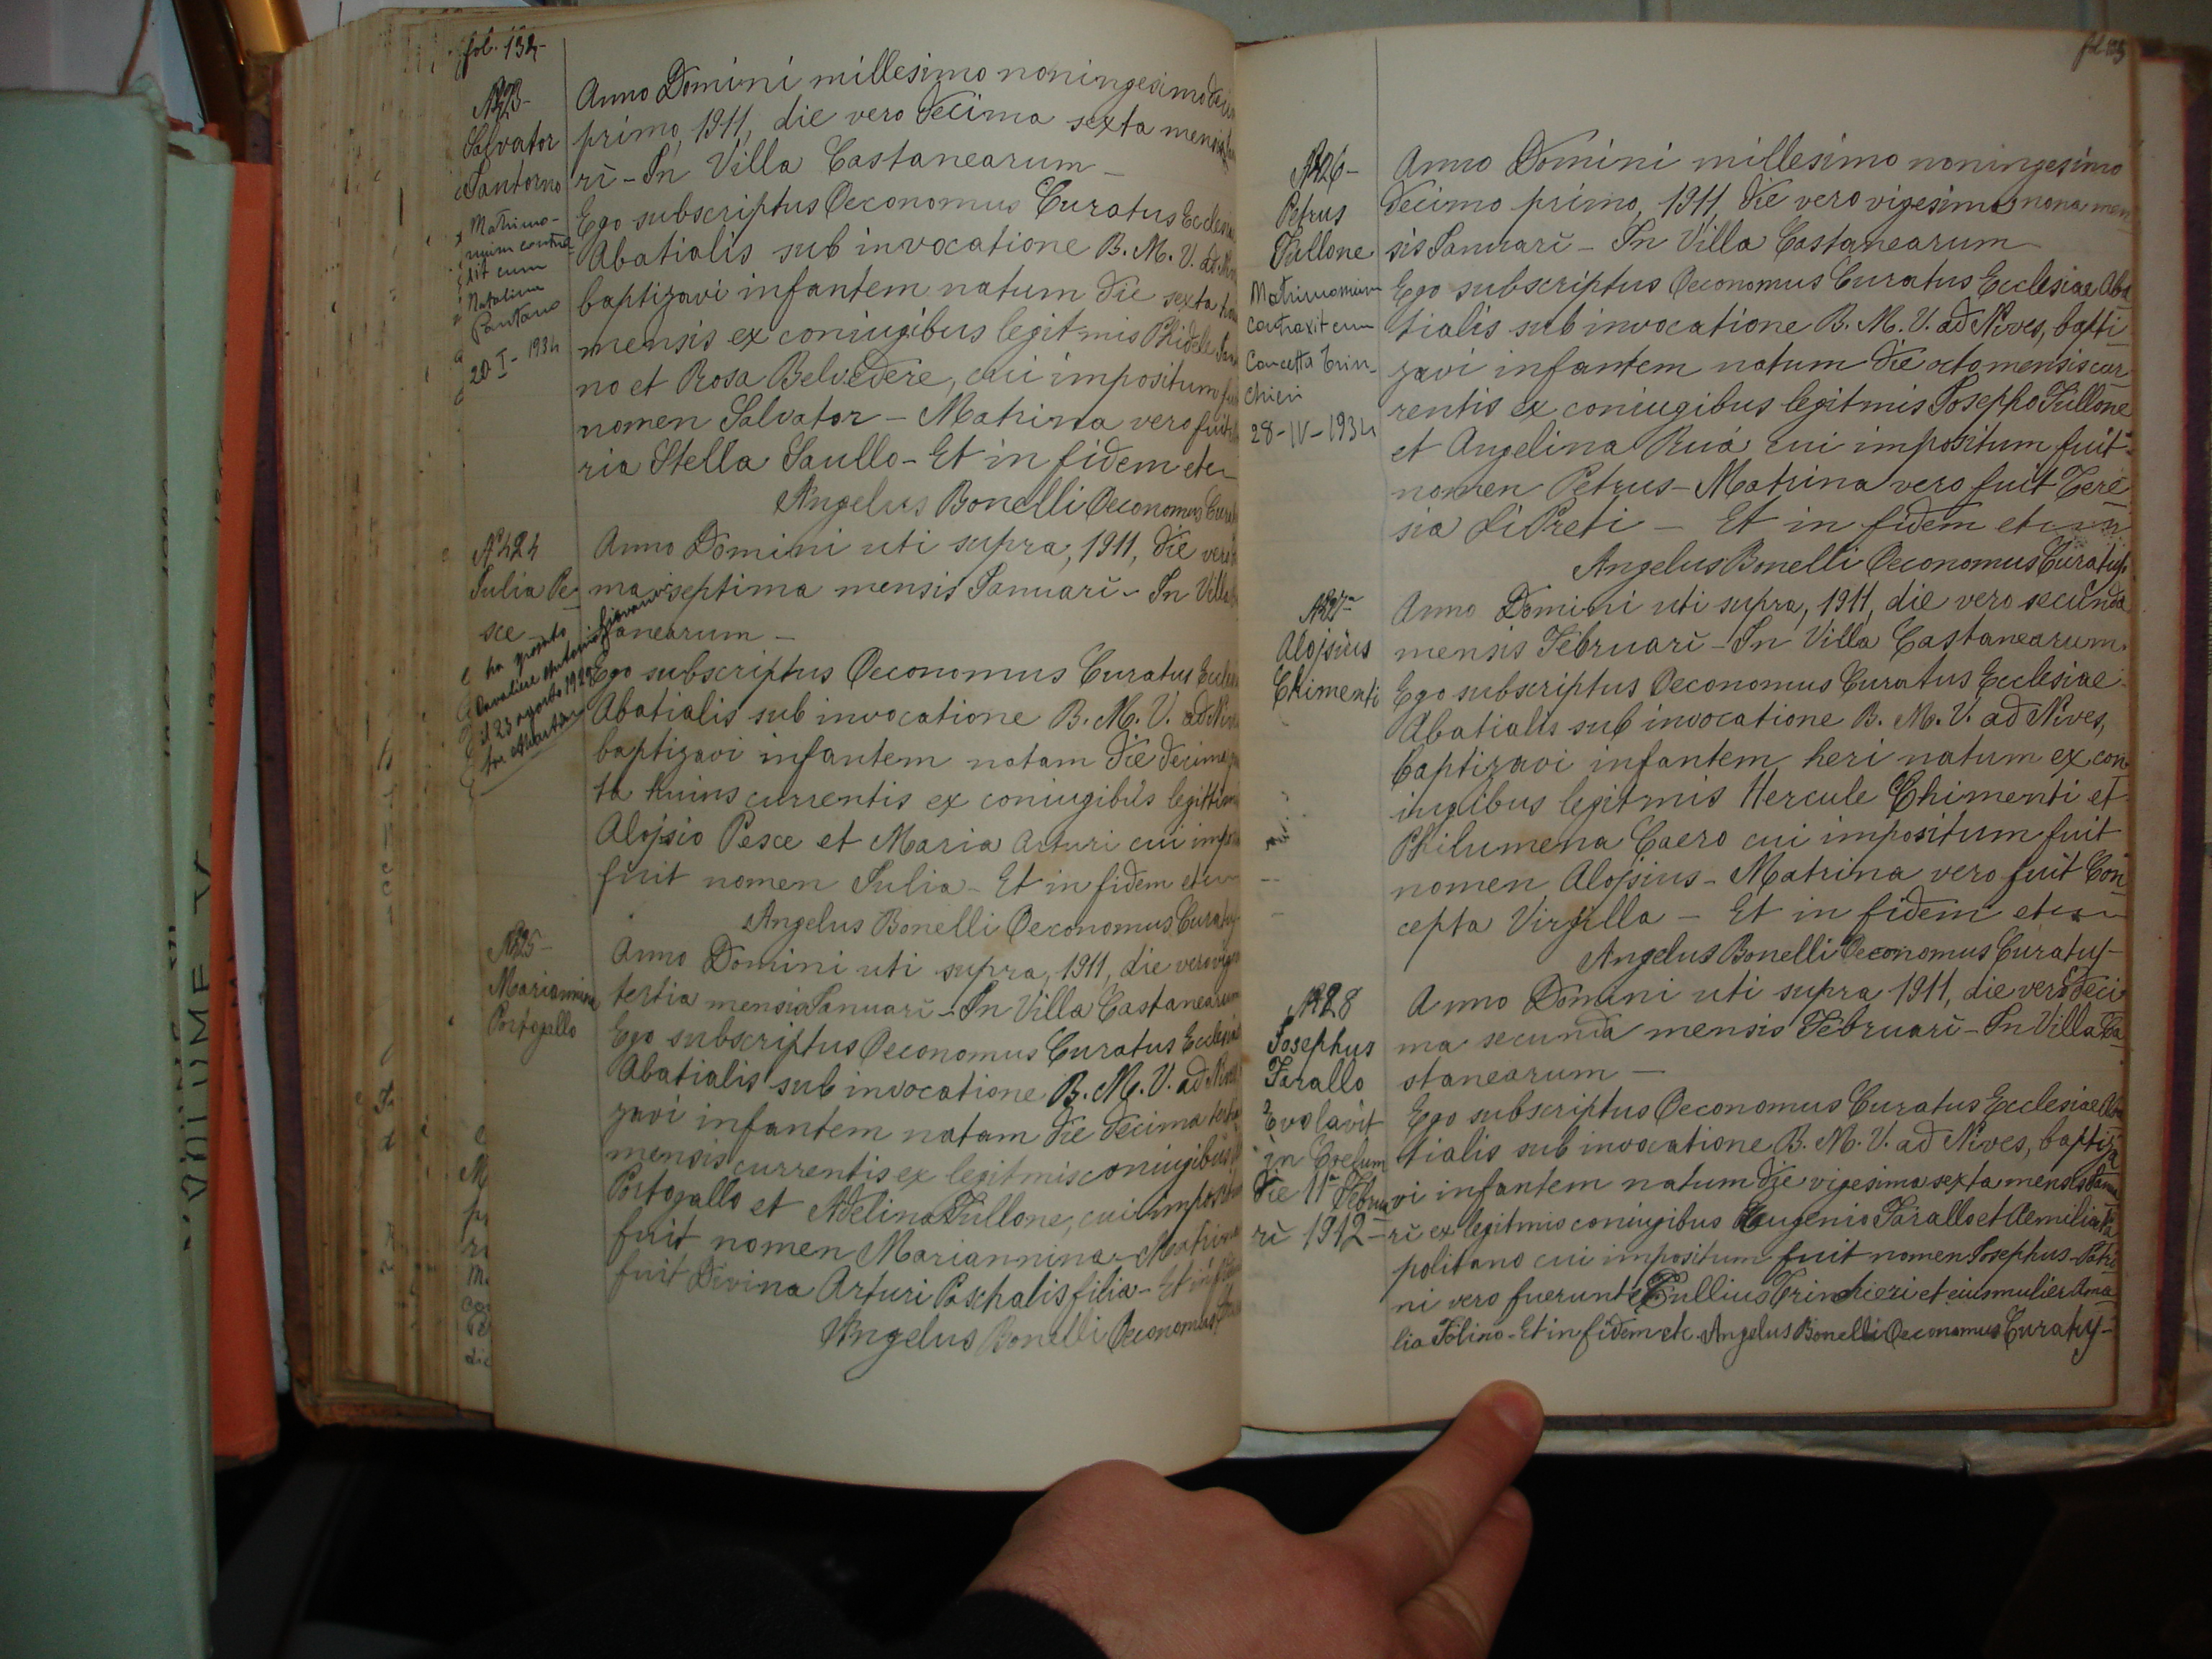 fol. 134-
Salvator
Santorno
Matrimo-
nium contra-
xit cum
Natalina
Pantano
20-I-1934
Anno Domini millesimo noningesimo deci
primo, 1911, die vero decima sexta mensis
rii - In Villa Castanearum -
Ego subscriptus Oeconomus Curatus Ecclesia
Abatialis sub invocatione B. M. V. ad
baptizavi infantem natum die sexta
mensis ex coniugibus legitmis Phidele
no et Rosa Belvedere, cui impositum
nomen Salvator - Matrina vero fuit
ria Stella Saullo - Et in fidem etc
Angelus Bonelli Oeconomus
N° 424
Iulia Pe-
sce -
ha sposato
Cavaliere Antonio Giovanni
il 23 agosto 1929
Anno Domini uti supra, 1911, die vero
ma septima mensis Ianuarii - In Villa
stanearum -
Ego subscriptus Oeconomus Curatus
Abatialis sub invocatione B. M. V. ad
baptizavi infantem natam die decima
ta huius currentis ex coniugibus legittim
Alojsio Pesce et Maria Arturi cui
fuit nomen Iulia - Et in fidem etc
Angelus Bonelli Oeconomus Curatus
Mariannina
Portogallo
Anno Domini uti supra, 1911, die vero
tertia mensis Ianuarii - In Villa Castanearum
Ego subscriptus Oeconomus Curatus Ecclesia
Abatialis sub invocatione B. M. V. ad
zavi infantem natam die decima
mensis currentis ex legitmis coniugibus
Portogallo et Adelina Tullone, cui
fuit nomen Mariannina - Matrina
fuit Divina Arturi Paschalis filia - Et in
Angelus Bonelli Oeconomus
N° 426 -
Petrus
Tullone
Matrimonium
contraxit cum
Concetta Trin-
chieri
28-IV-1934
Anno Domini millesimo noningesimo
decimo primo, 1911, die vero vigesima nona men
sis Ianuarii - In Villa Castanearum
Ego subscriptus Oeconomus Curatus Ecclesiae Aba
tialis sub invocatione B. M. V. ad Nives, bapti-
zavi infantem natum die octo mensis cur
rentis ex coniugibus legitmis Iosepho Tullone
et Angelina Ruá cui impositum fuit
nomen Petrus - Matrina vero fuit Tere
sia Li Preti - Et in fidem etc
Angelus Bonelli Oeconomus Curatus
Alojsius
Chimenti
Anno Domini uti supra, 1911, die vero secunda
mensis Februarii - In Villa Castanearum.
Ego subscriptus Oeconomus Curatus Ecclesiae
Abatialis sub invocatione B. M. V. ad Nives,
baptizavi infantem heri natum ex con
iugibus legitmis Hercule Chimenti et
Philumena Caero cui impositum fuit
nomen Alojsius - Matrina vero fuit Con
cepta Virgilla - Et in fidem etc
Angelus Bonelli Oeconomus Curatus -
N° 428
Iosephus
Tarallo
Evolavit
in Coelum
die 11a Februa
rii 1912 -
Anno Domini uti supra 1911, die vero deci
ma secunda mensis Februarii - In Villa Ca
stanearum -
Ego subscriptus Oeconomus Curatus Ecclesiae Aba
tialis sub invocatione B. M. V. ad Nives, baptiza
vi infantem natum die vigesima sexta mensis Ianua
rii ex legitmis coniugibus Eugenio Tarallo et Aemilia Na
politano cui impositum fuit nomen Iosephus - Patri
ni vero fuerunt Tullius Trinchieri et eius mulier Ama
lia Tolino - Et in fidem etc. Angelus Bonelli Oeconomus Curatus -